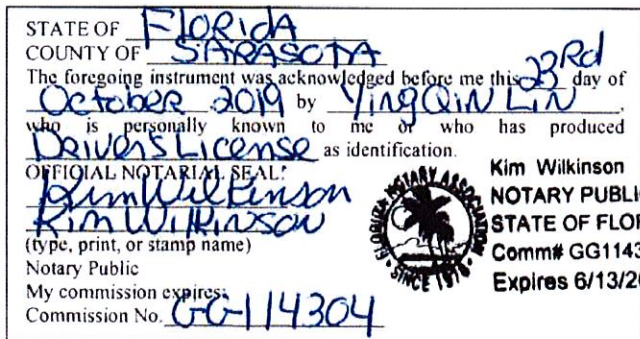 STATE OF FLORIDA
COUNTY OF SARASOTA
The foregoing instrument was acknowledged before me this 23Rd day of
October 2019 by YingQiN LiN,
who is personally known to me or who has produced
DRiveRS License as identification.
OFFICIAL NOTARIAL SEAL:
Kim Wilkinson
Kim Wilkinson
(type, print, or stamp name)
Notary Public
My commission expires:
Commission No. GG-114304
FLORIDA NOTARY ASSOCIATION
SINCE 1978
Kim Wilkinson
NOTARY PUBLI
STATE OF FLOR
Comm# GG1143
Expires 6/13/20